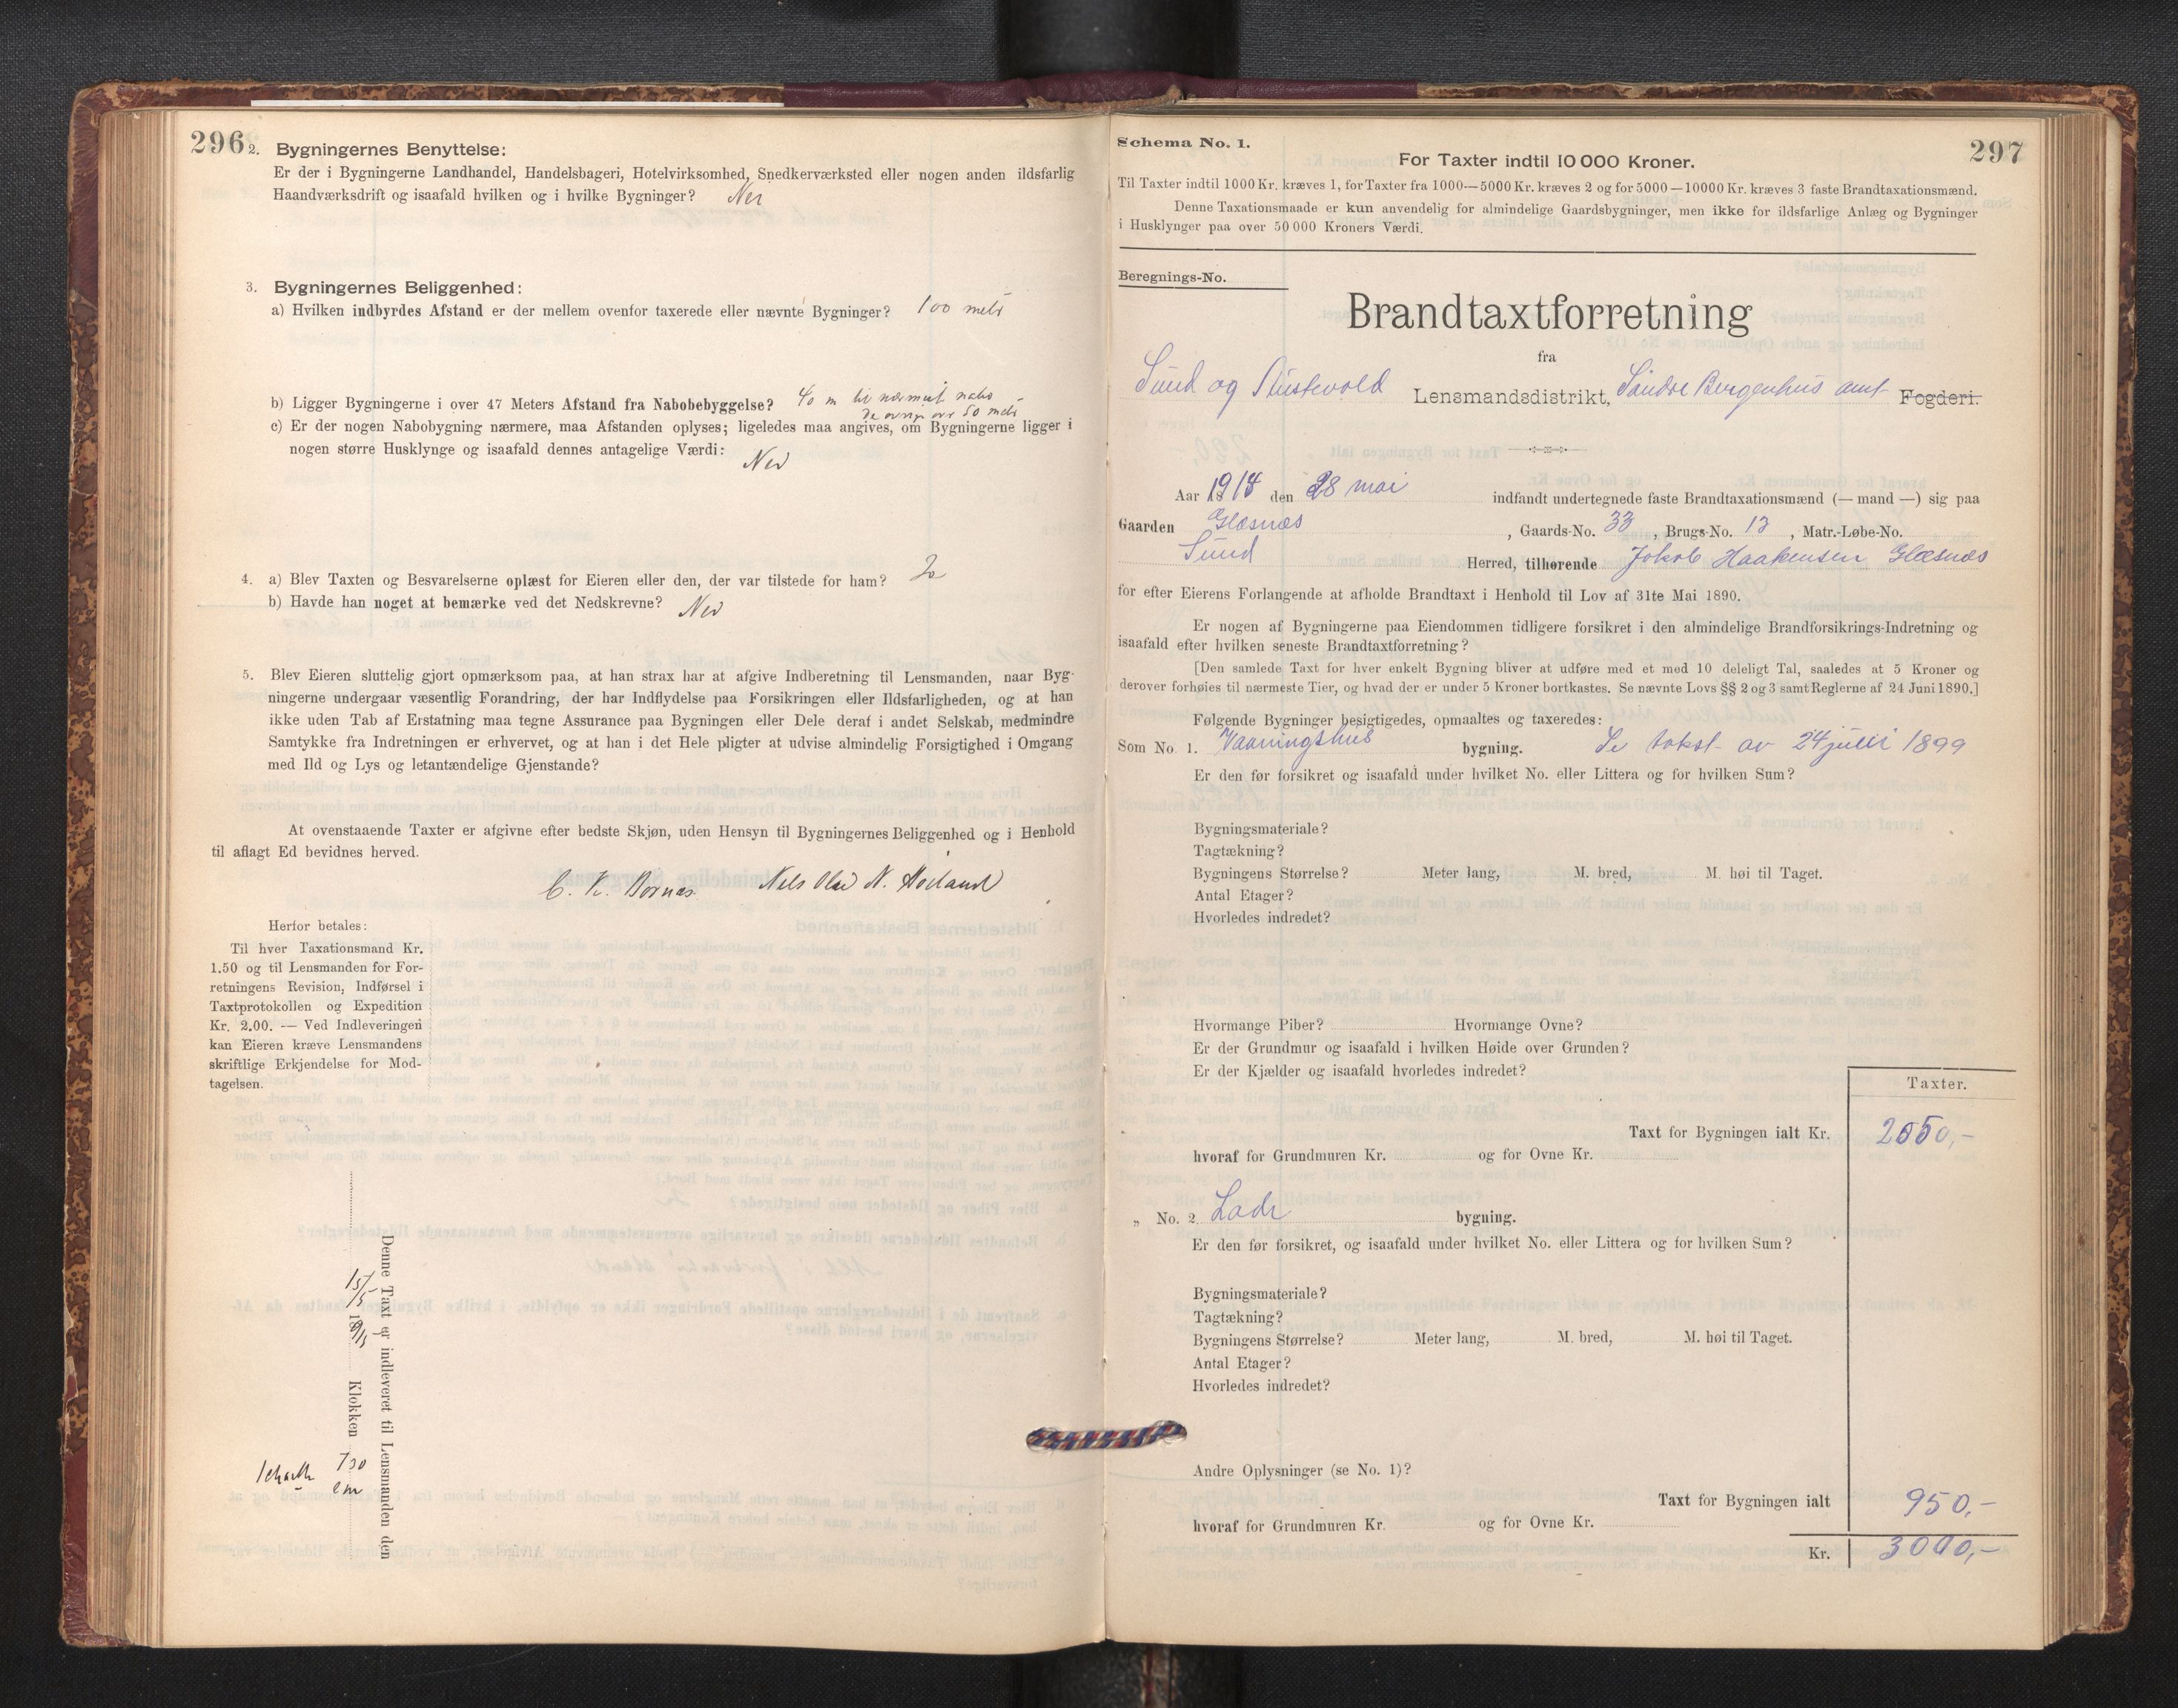 296
2. Bygningernes Benyttelse:
Er der i Bygningerne Landhandel, Handelsbageri, Hotelvirksomhed, Snedkerværksted eller nogen anden ildsfarlig
Haandværksdrift og isaafald hvilken og i hvilke Bygninger? Nei
3. Bygningernes Beliggenhed:
a) Hvilken indbyrdes Afstand er der mellem ovenfor taxerede eller nævnte Bygninger? 100 mets
b) Ligger Bygningerne i over 47 Meters Afstand fra Nabobebyggelse? 40 m til nærmest nabo
De øvrige over 50 mets
c) Er der nogen Nabobygning nærmere, maa Afstanden oplyses; ligeledes maa angives, om Bygningerne ligger i
nogen større Husklynge og isaafald dennes antagelige Værdi: Nei
4. a) Blev Taxten og Besvarelserne oplæst for Eieren eller den, der var tilstede for ham? Ja
b) Havde han noget at bemærke ved det Nedskrevne? Nei
5. Blev Eieren sluttelig gjort opmærksom paa, at han strax har at afgive Indberetning til Lensmanden, naar Byg-
ningerne undergaar væsentlig Forandring, der har Indflydelse paa Forsikringen eller Ildsfarligheden, og at han
ikke uden Tab af Erstatning maa tegne Assurance paa Bygningen eller Dele deraf i andet Selskab, medmindre
Samtykke fra Indretningen er erhvervet, og at han i det Hele pligter at udvise almindelig Forsigtighed i Omgang
med Ild og Lys og letantændelige Gjenstande?
At ovenstaaende Taxter er afgivne efter bedste Skjøn, uden Hensyn til Bygningernes Beliggenhed og i Henhold
til aflagt Ed bevidnes herved.
C. K. Nils Olai N.
Herfor betales:
Til hver Taxationsmand Kr.
1.50 og til Lensmanden for For-
retningens Revision, Indførsel i
Taxtprotokollen og Expedition
Kr. 2.00. — Ved Indleveringen
kan Eieren kræve Lensmandens
skriftlige Erkjendelse for Mod-
tagelsen.
Denne Taxt er indleveret til Lensmanden den
15/5 Klokken 730
em
Schema No. 1.
297
For Taxter indtil 10 000 Kroner.
Til Taxter indtil 1000 Kr. kræves 1, for Taxter fra 1000—5000 Kr. kræves 2 og for 5000—10000 Kr. kræves 3 faste Brandtaxationsmænd.
Denne Taxationsmaade er kun anvendelig for almindelige Gaardsbygninger, men ikke for ildsfarlige Anlæg og Bygninger
i Husklynger paa over 50 000 Kroners Værdi.
Beregnings-No.
Brandtaxtforretning
fra
Sund og Austevold Lensmandsdistrikt, Søndre Bergenhus amt Fogderi.
Aar 1918 den 28 mai indfandt undertegnede faste Brandtaxationsmænd (— mand —) sig paa
Gaarden Glesnæs, Gaards-No. 33, Brugs-No. 13, Matr.-Løbe-No.
Sund Herred, tilhørende Jokob Haakensen Glesnæs
for efter Eierens Forlangende at afholde Brandtaxt i Henhold til Lov af 31te Mai 1890.
Er nogen af Bygningerne paa Eiendommen tidligere forsikret i den almindelige Brandforsikrings-Indretning og
isaafald efter hvilken seneste Brandtaxtforretning?
[Den samlede Taxt for hver enkelt Bygning bliver at udføre med et med 10 deleligt Tal, saaledes at 5 Kroner og
derover forhøies til nærmeste Tier, og hvad der er under 5 Kroner bortkastes. Se nævnte Lovs §§ 2 og 3 samt Reglerne af 24 Juni 1890.]
Følgende Bygninger besigtigedes, opmaaltes og taxeredes:
Som No. 1. Vaaningshus bygning. Se takst av 24 juli 1899
Er den før forsikret og isaafald under hvilket No. eller Littera og for hvilken Sum?
Bygningsmateriale?
Tagtækning?
Bygningens Størrelse? Meter lang, M. bred, M. høi til Taget.
Antal Etager?
Hvorledes indredet?
Hvormange Piber? Hvormange Ovne?
Er der Grundmur og isaafald i hvilken Høide over Grunden?
Er der Kjælder og isaafald hvorledes indredet?
Taxter.
Taxt for Bygningen ialt Kr. 2050,-
hvoraf for Grundmuren Kr. og for Ovne Kr.
„ No. 2. Lade bygning.
Er den før forsikret, og isaafald under hvilket No. eller Littera og for hvilken Sum?
Bygningsmateriale?
Tagtækning?
Bygningens Størrelse? Meter lang, M. bred, M. høi til Taget.
Antal Etager?
Hvorledes indredet?
Andre Oplysninger (se No. 1)?
Taxt for Bygningen ialt 950,-
hvoraf for Grundmuren Kr. og for Ovne Kr.
Kr. 3000,-